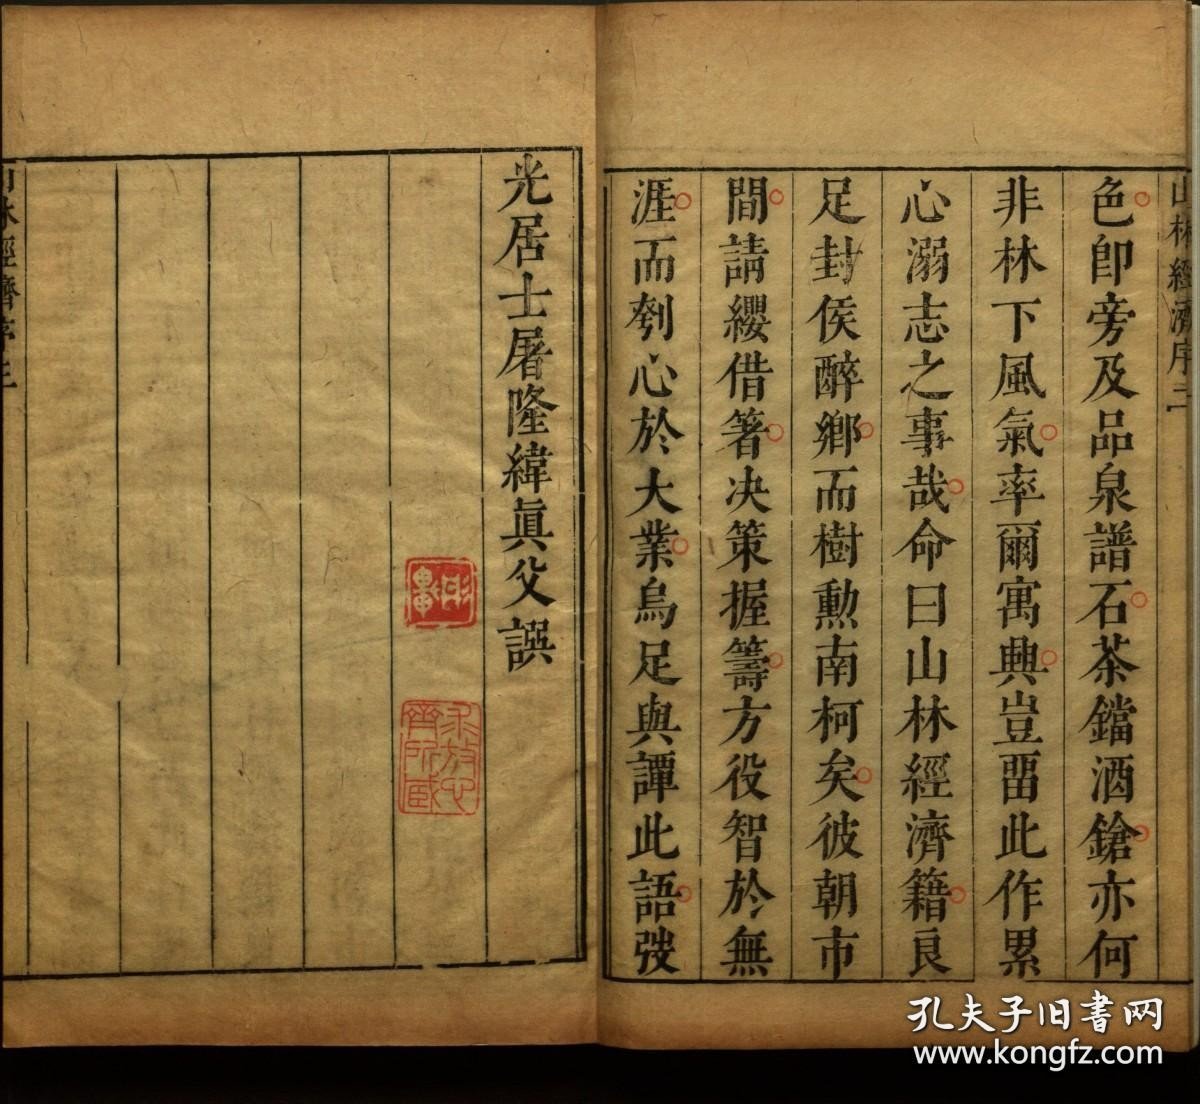 山林經濟序二
色卽旁及品泉譜石茶鐺酒鎗亦何
非林下風氣率爾寓興豈畱此作累
心溺志之事哉命曰山林經濟籍良
足封侯醉鄉而樹勳南柯矣彼朝市
間請纓借箸决策握籌方役智於無
涯而刳心於大業烏足與譚此語弢
光居士屠隆緯眞父譔
山林經濟序三
孔夫子旧书网
www.kongfz.com